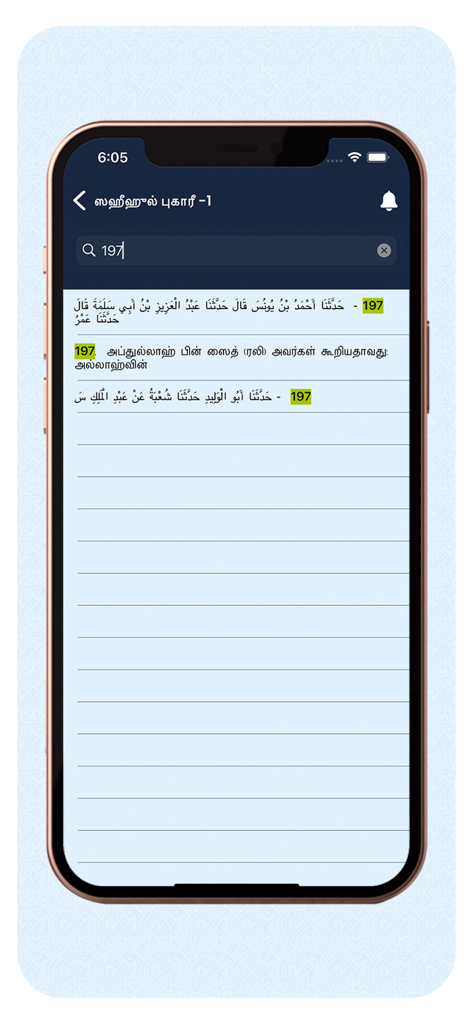 6:05
ஸஹீஹுல் புகாரீ -1
197
197 - حَدَّثَنَا أَحْمَدُ بْنُ يُونُسَ قَالَ حَدَّثَنَا عَبْدُ الْعَزِيزِ بْنُ أَبِي سَلَمَةَ قَالَ
حَدَّثَنَا عَمْرُ
197. அப்துல்லாஹ் பின் ஸைத் (ரலி) அவர்கள் கூறியதாவது:
அல்லாஹ்வின்
197 - حَدَّثَنَا أَبُو الْوَلِيدِ حَدَّثَنَا شُعْبَةُ عَنْ عَبْدِ الْمَلِكِ سَ